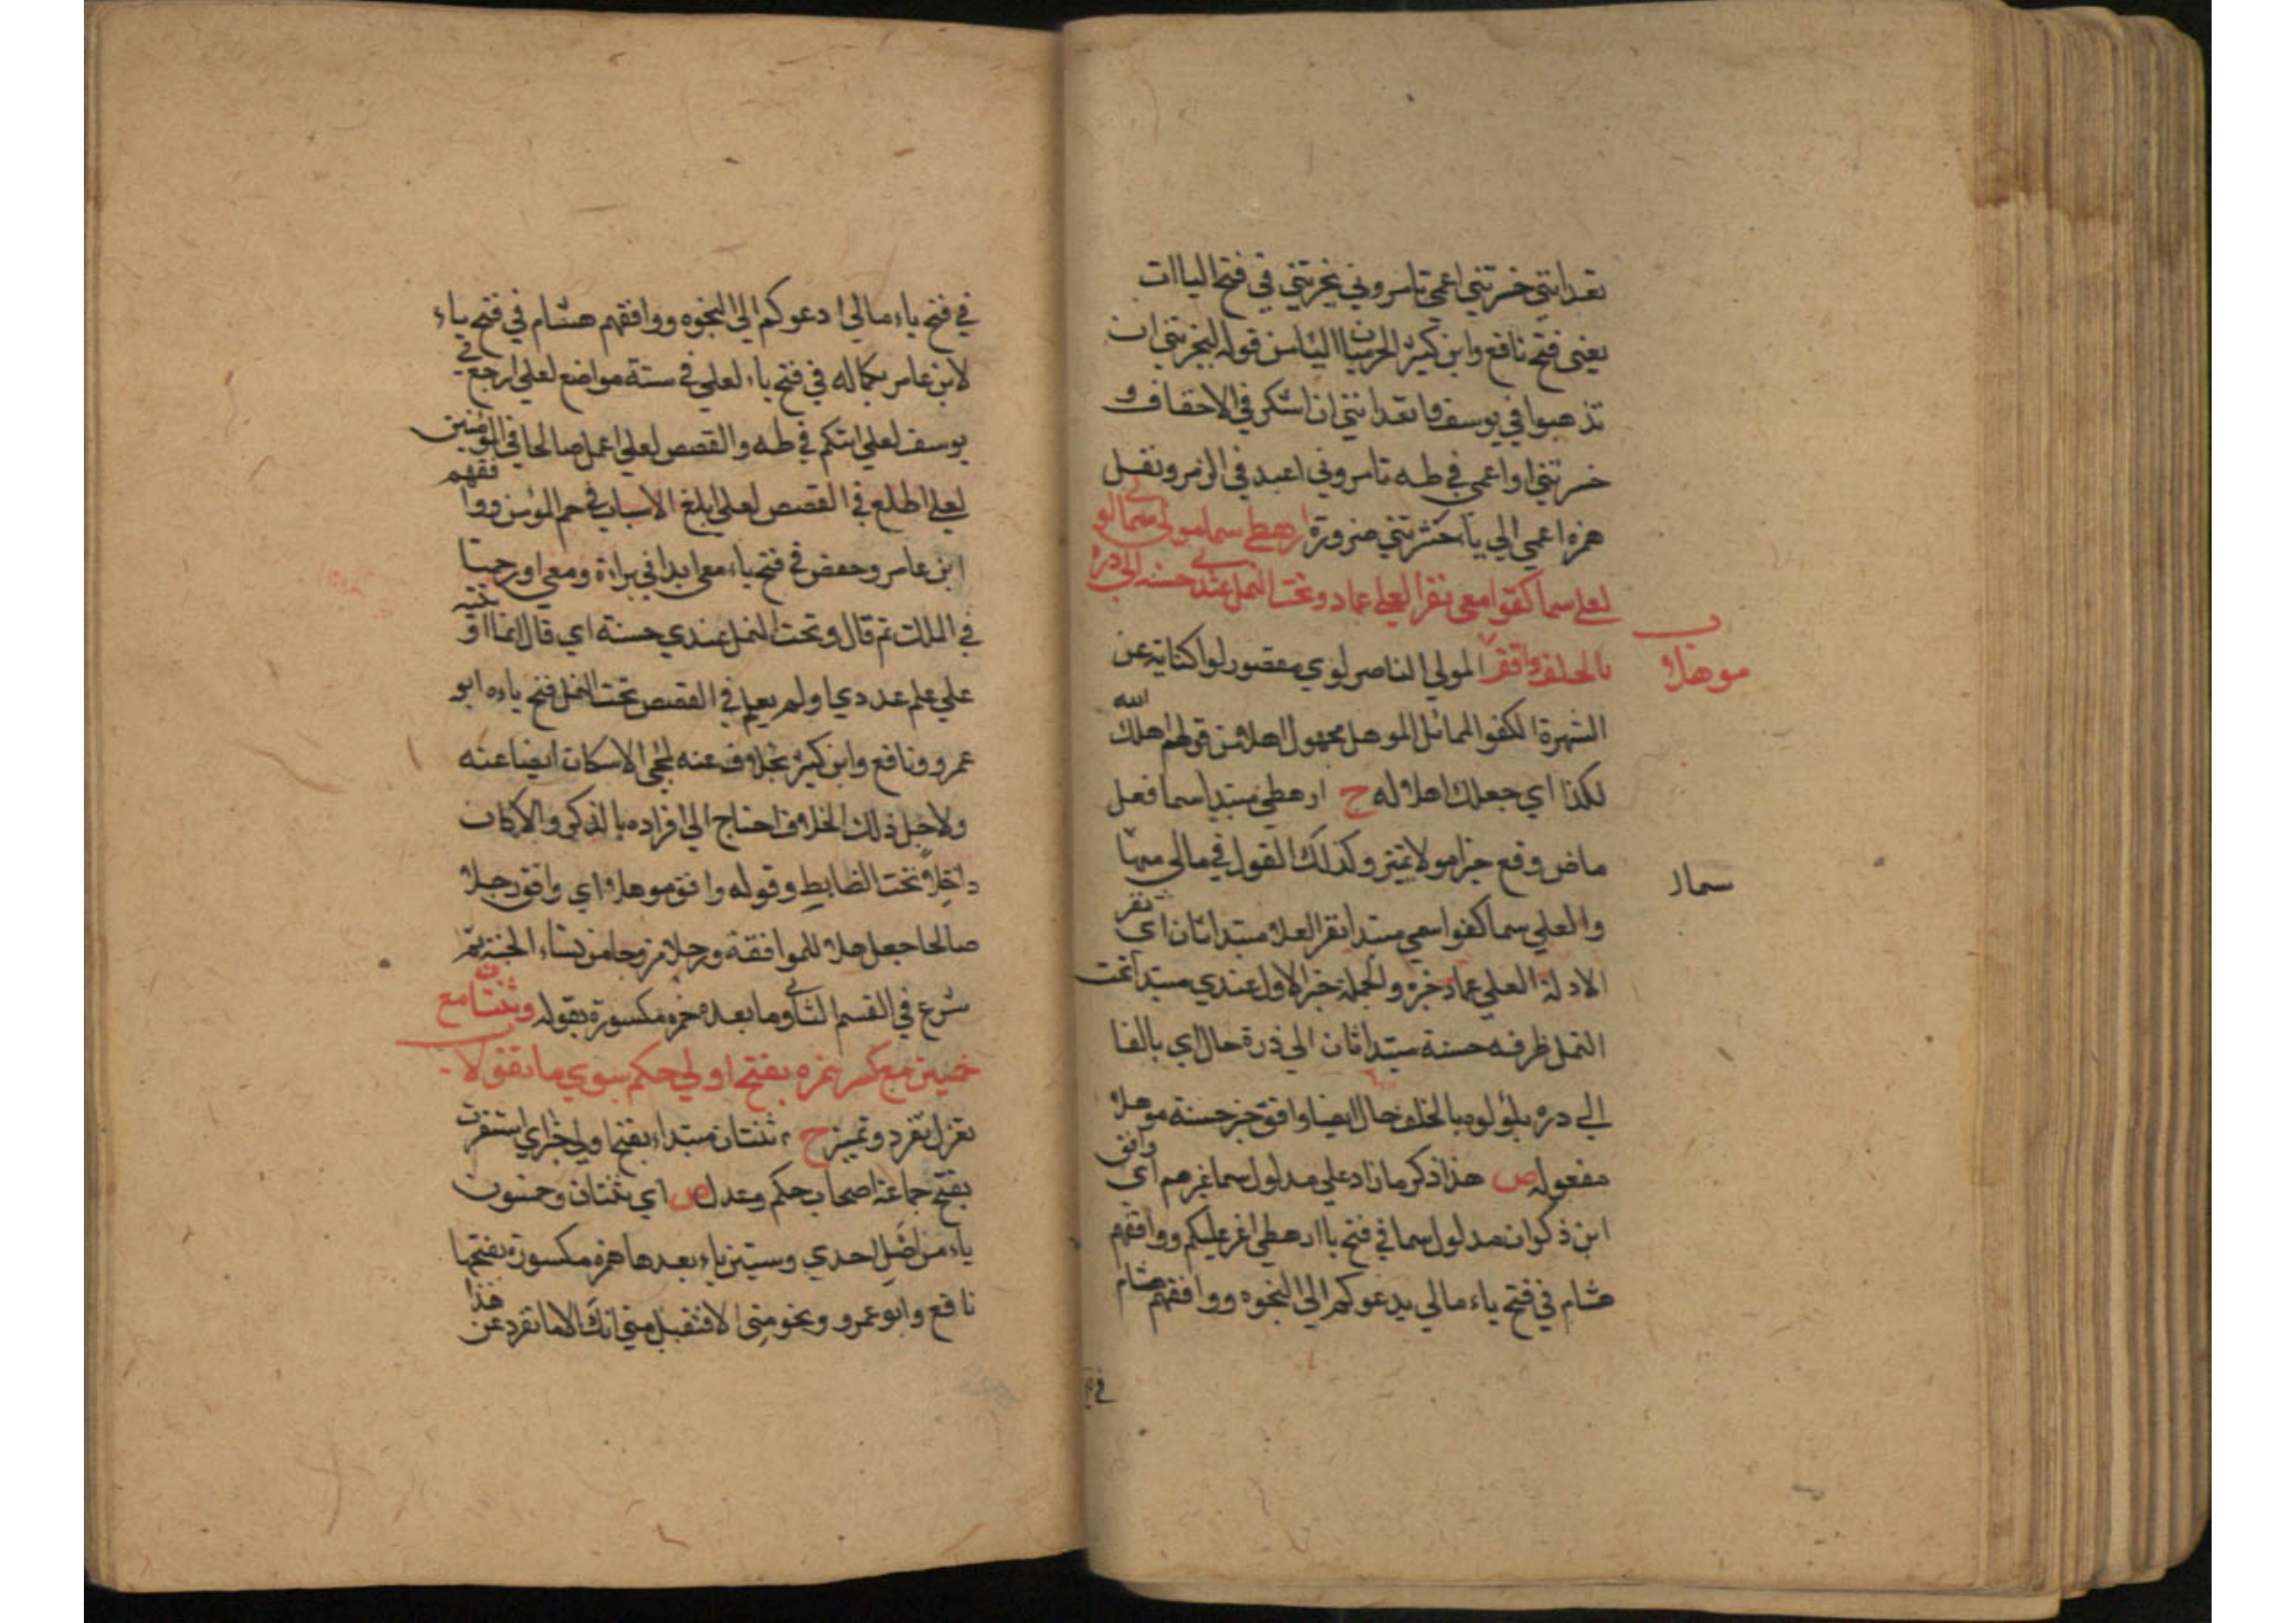 تعدانني حشرتني اعمي تامروني يحزنني في فتح الياات
يعني فتح نافع وابن كثير الحرميان الياس قوله ليحزنني ان
تذهبوا في يوسف واتعدانني ان اشكر في الاحقاف و
حشرتني اواعمي في طه تامروني اعبد في الزمر ونقل
همزه اعمي الي ياء حشرتني ضرورة ارهطي سما مولي ومالي سما لوي
لعلي سما كفوا معي نفر العلي عماد وتحت النمل عندي حسنه الي دره
بالخلف وافق المولي الناصر لوي مقصور لوا كناية عن
موهلا
الشهرة الكفو المماثل الموهل مجهول اهلا من قولهم اهلك الله
لكذا اي جعلك اهلا له ح ارهطي مبتدا سما فعل
ماض وقع خبرا مولا تمييز وكذلك القول في مالي سما
سما لـ
والعلي سما كفوا معي مبتدا نفر العلا مبتدا ثان اي نفر
الادلة العلي عماد خبره والجملة خبر الاول عندي مبتدا تحت
النمل ظرفه حسنه مبتدا ثان الي دره حال اي بالغا
الي دره بلؤلوه بالخلف حال ايضا وافق خبر حسنه موهلا
مفعوله ص هذا ذكر ما زاد علي مدلول سما غيرهم اي وافق
ابن ذكوان مدلول سما في فتح يا ارهطي اعز عليكم ووافقهم
هشام في فتح ياء مالي يدعوكم الي النجوه ووافقهم هشام
في فتح
في فتح ياء مالي ادعوكم الي النجوه ووافقهم هشام في فتح ياء
لابن عامر بكماله في فتح ياء لعلي في ستة مواضع لعلي ارجع في
يوسف لعلي اتيكم في طه والقصص لعلي اعمل صالحا في المؤمنين
لعلي اطلع في القصص لعلي ابلغ الاسباب في حم المؤمن ووافقهم
ابن عامر وحفص في فتح ياء معي ابدا في براءة ومعي اورحمنا
في الملك ثم قال وتحت النمل عندي حسنه اي قال انما اوتيته
علي علم عندي اولم يعلم في القصص تحت النمل فتح ياءه ابو
عمرو ونافع وابن كثير بخلاف عنه لمجي الاسكان ايضا عنه
ولاجل ذلك الخلاف احتاج الي افراده بالذكر والا كان
داخلا تحت الضابط وقوله وافق موهلا اي وافق رجلا
صالحا جعل هلا للموافقة ورجلا مزوجا من نساء الجنة ثم
شرع في القسم الثاني وما بعده همزه مكسورة بقوله وثنتان مع
خمسين مع كسر همزه بفتح اولي حكم سوي ما تفولا
تعزل تفرد وتميز ح ثنتان مبتداء بفتح اولي خبر اي استقرت
بفتح جماعة اصحاب حكم وعدل ص اي ثنتان وخمسون
ياء من اصل احدي وستين ياء بعدها همزه مكسورة بفتحها
نافع وابو عمرو ونحو مني الا فتقبل مني انك الا ما تفرد عن هذا